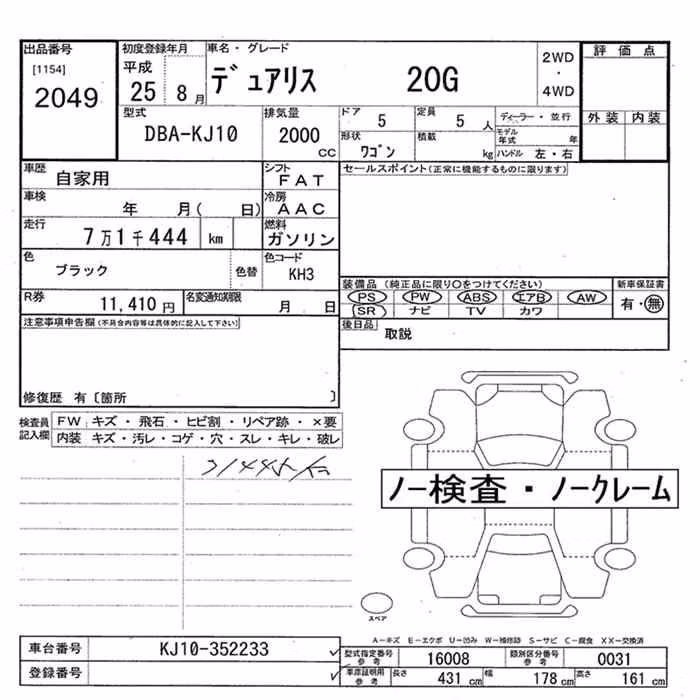 出品番号 初度登録年月 車名・グレード 2WD 評価点
[1154] 平成 デュアリス 20G ・
2049 25 8月 4WD
型式 排気量 ドア 5 定員 5人 ディーラー・並行 外装 内装
DBA-KJ10 2000cc 形状 ワゴン 積載 kg モデル年式 年
ハンドル 左・右
車歴 自家用 シフト FAT セールスポイント(正常に機能するものに限ります)
車検 年 月( 日) 冷房 AAC
走行 7万1千444 km 燃料 ガソリン
色 ブラック 色替 色コード KH3 装備品(純正品に限り○をつけてください) 新車保証書
R券 11,410円 名変通知期限 月 日 PS PW ABS エアB AW 有・無
SR ナビ TV カワ
注意事項申告欄(不具合内容等は具体的に記入して下さい) 後日品 取説
修復歴 有〔箇所 〕
検査員記入欄 FW キズ・飛石・ヒビ割・リペア跡・×要
内装 キズ・汚レ・コゲ・穴・スレ・キレ・破レ
ノー検査・ノークレーム
スペア
A-キズ E-エクボ U-凹み W-補修跡 S-サビ C-腐食 XX-交換済
車台番号 KJ10-352233 型式指定番号参考 16008 類別区分番号参考 0031
登録番号 車庫証明用参考 長さ 431cm 幅 178cm 高さ 161cm